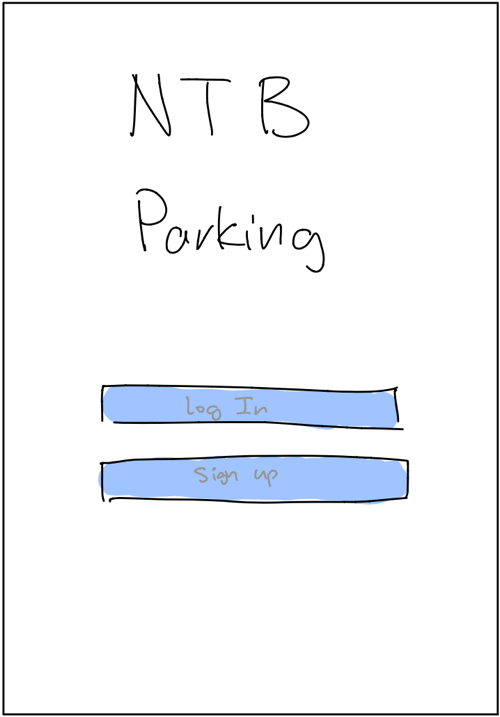 NTB
Parking
Log In
Sign up